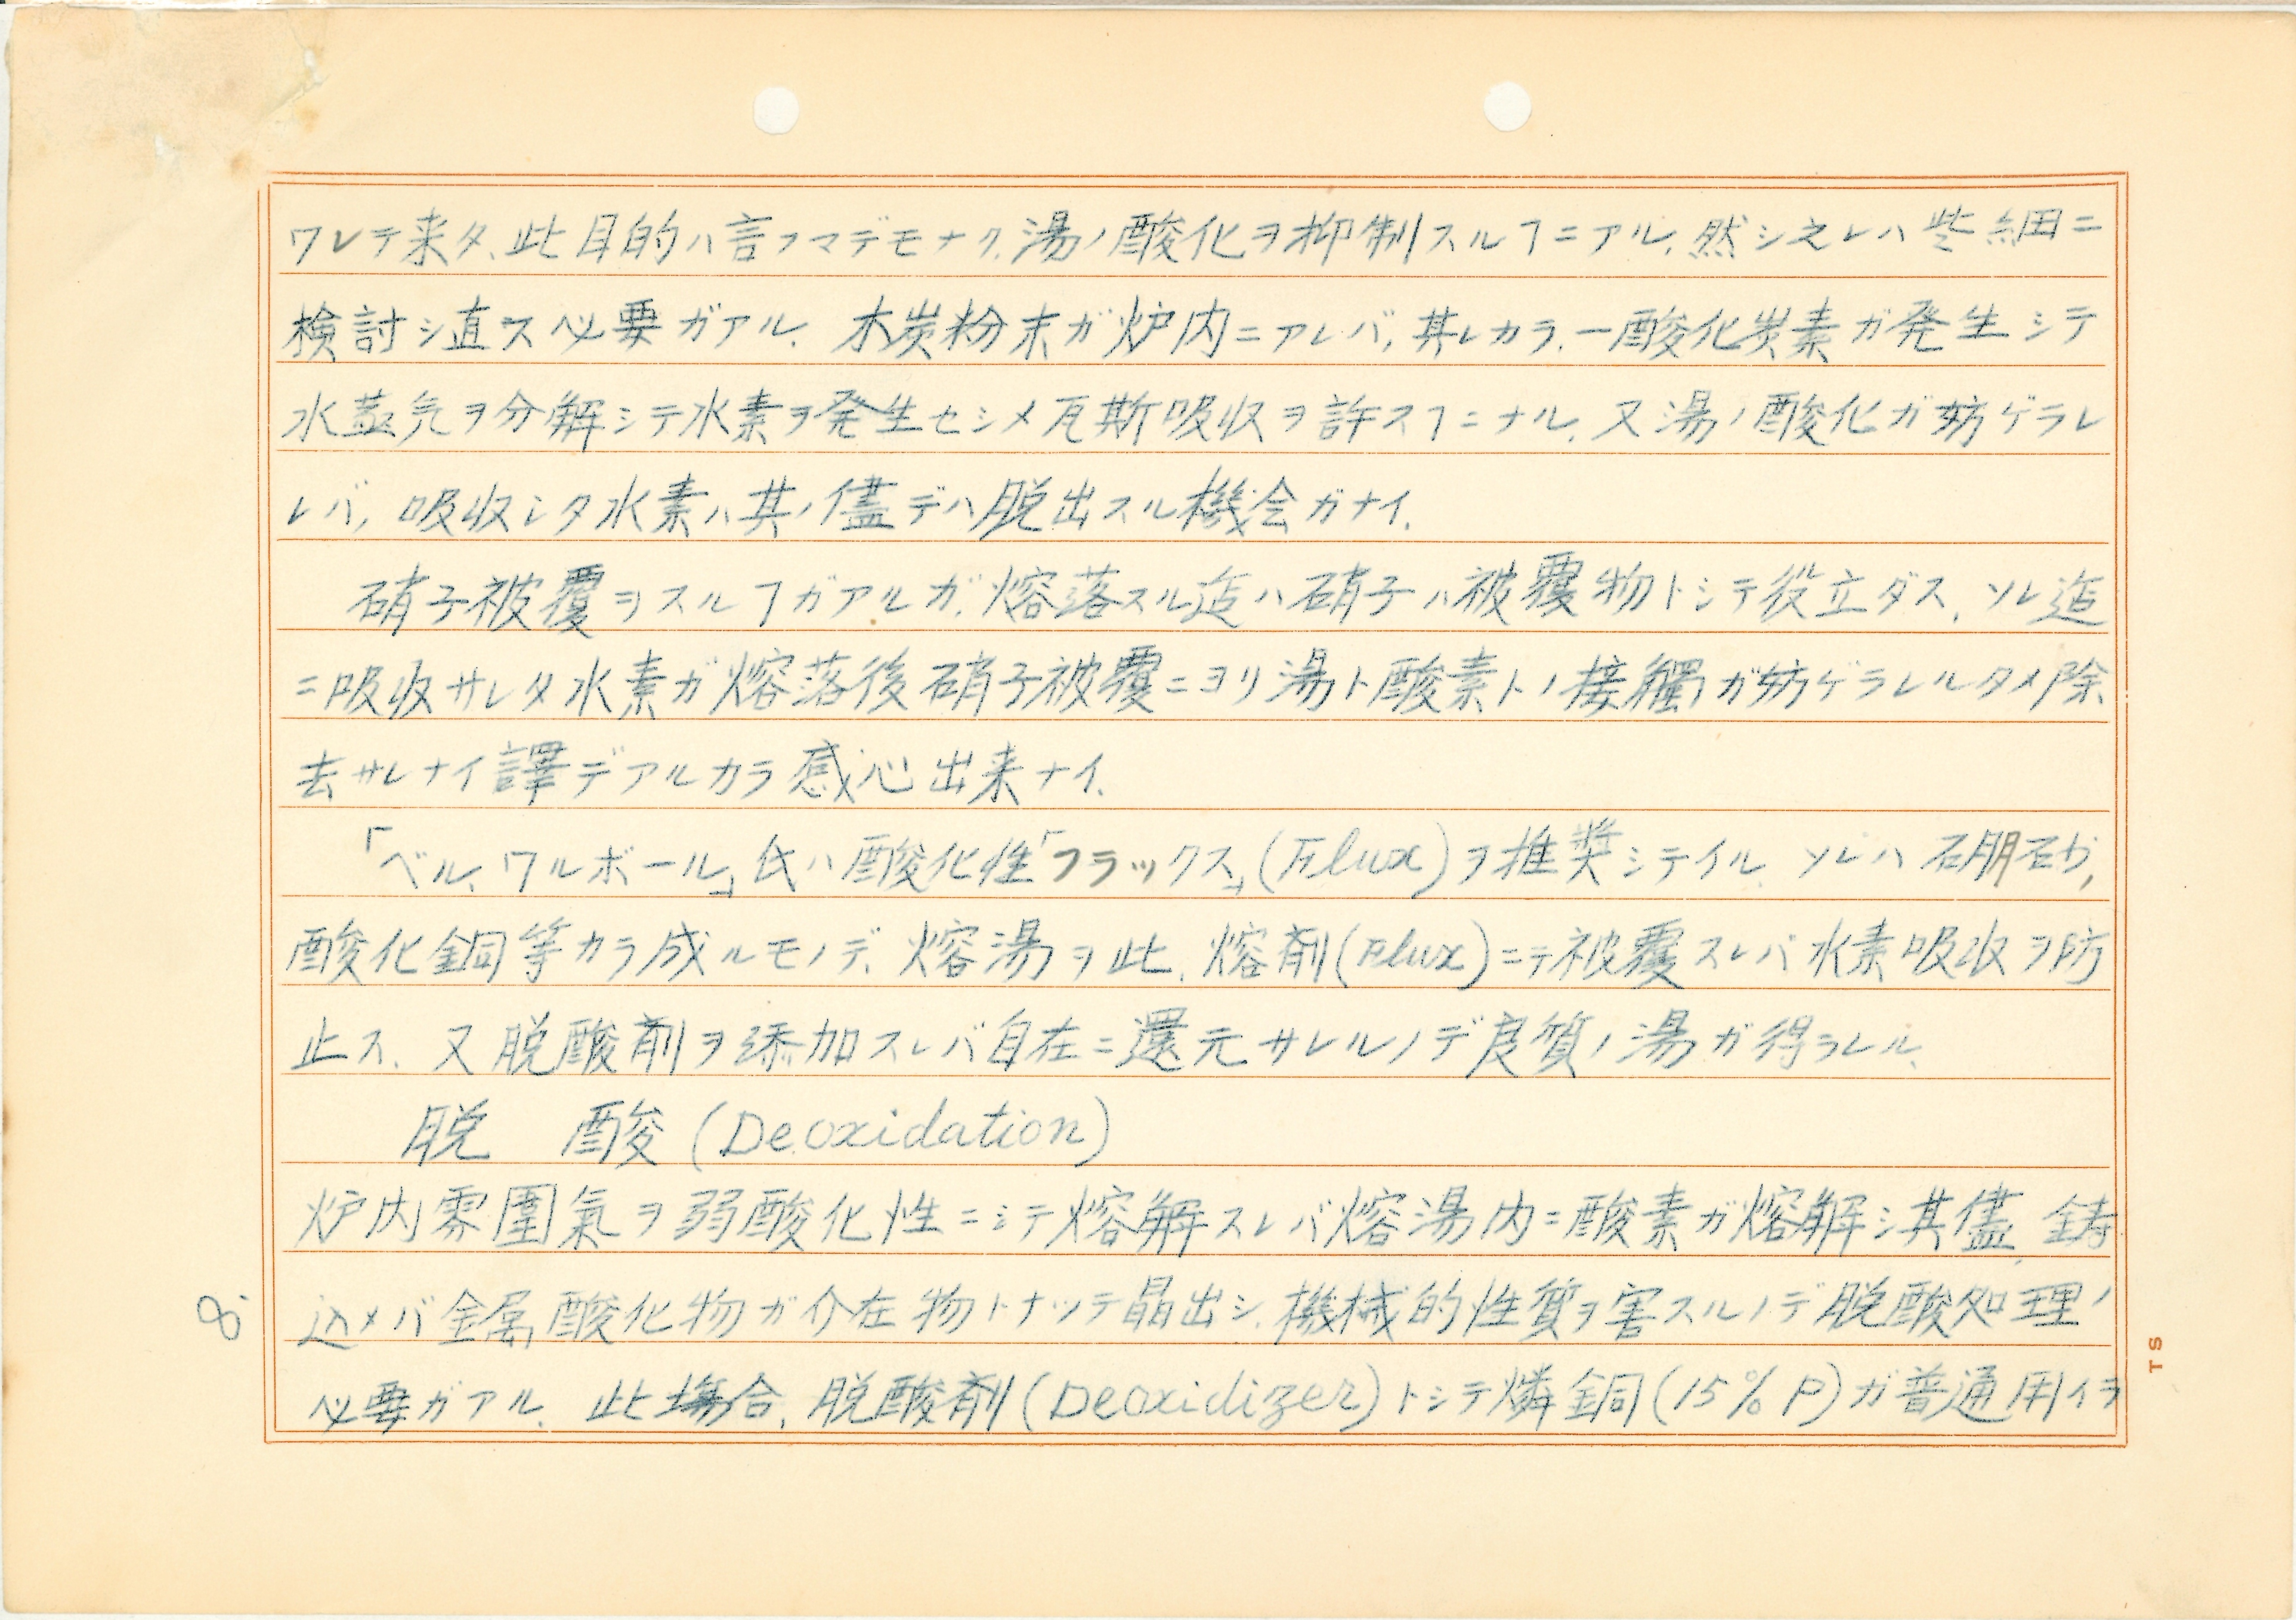 ワレテ来タ、此目的ハ言フマデモナク、湯ノ酸化ヲ抑制スルヿニアル、然シ之レハ些細ニ
検討シ直ス必要ガアル、木炭粉末ガ炉内ニアレバ、其レカラ、一酸化炭素ガ発生シテ
水蒸気ヲ分解シテ水素ヲ発生セシメ瓦斯吸収ヲ許スヿニナル、又湯ノ酸化ガ妨ゲラレ
レバ、吸収シタ水素ハ其ノ儘デハ脱出スル機会ガナイ、
硝子被覆ヲスルヿガアルガ、熔落スル迄ハ硝子ハ被覆物トシテ役立ダス、ソレ迄
ニ吸収サレタ水素ガ熔落後硝子被覆ニヨリ湯ト酸素トノ接觸ガ妨ゲラレルタメ除
去サレナイ譯デアルカラ感心出来ナイ、
「ベル、ワルボール」氏ハ酸化性「フラックス」(Flux)ヲ推奨シテイル、ソレハ硼砂,
酸化銅等カラ成ルモノデ、熔湯ヲ此、熔剤(Flux)ニテ被覆スレバ水素吸収ヲ防
止ス、又脱酸剤ヲ添加スレバ自在ニ還元サレルノデ良質ノ湯ガ得ラレル、
脱 酸 (Deoxidation)
炉内雰圍氣ヲ弱酸化性ニシテ熔解スレバ熔湯内ニ酸素ガ熔解シ其儘、鋳
8. 込メバ金属酸化物ガ介在物トナッテ晶出シ、機械的性質ヲ害スルノデ脱酸処理ノ
必要ガアル、此場合、脱酸剤(Deoxidizer)トシテ燐銅(15% P)ガ普通用イラ
TS